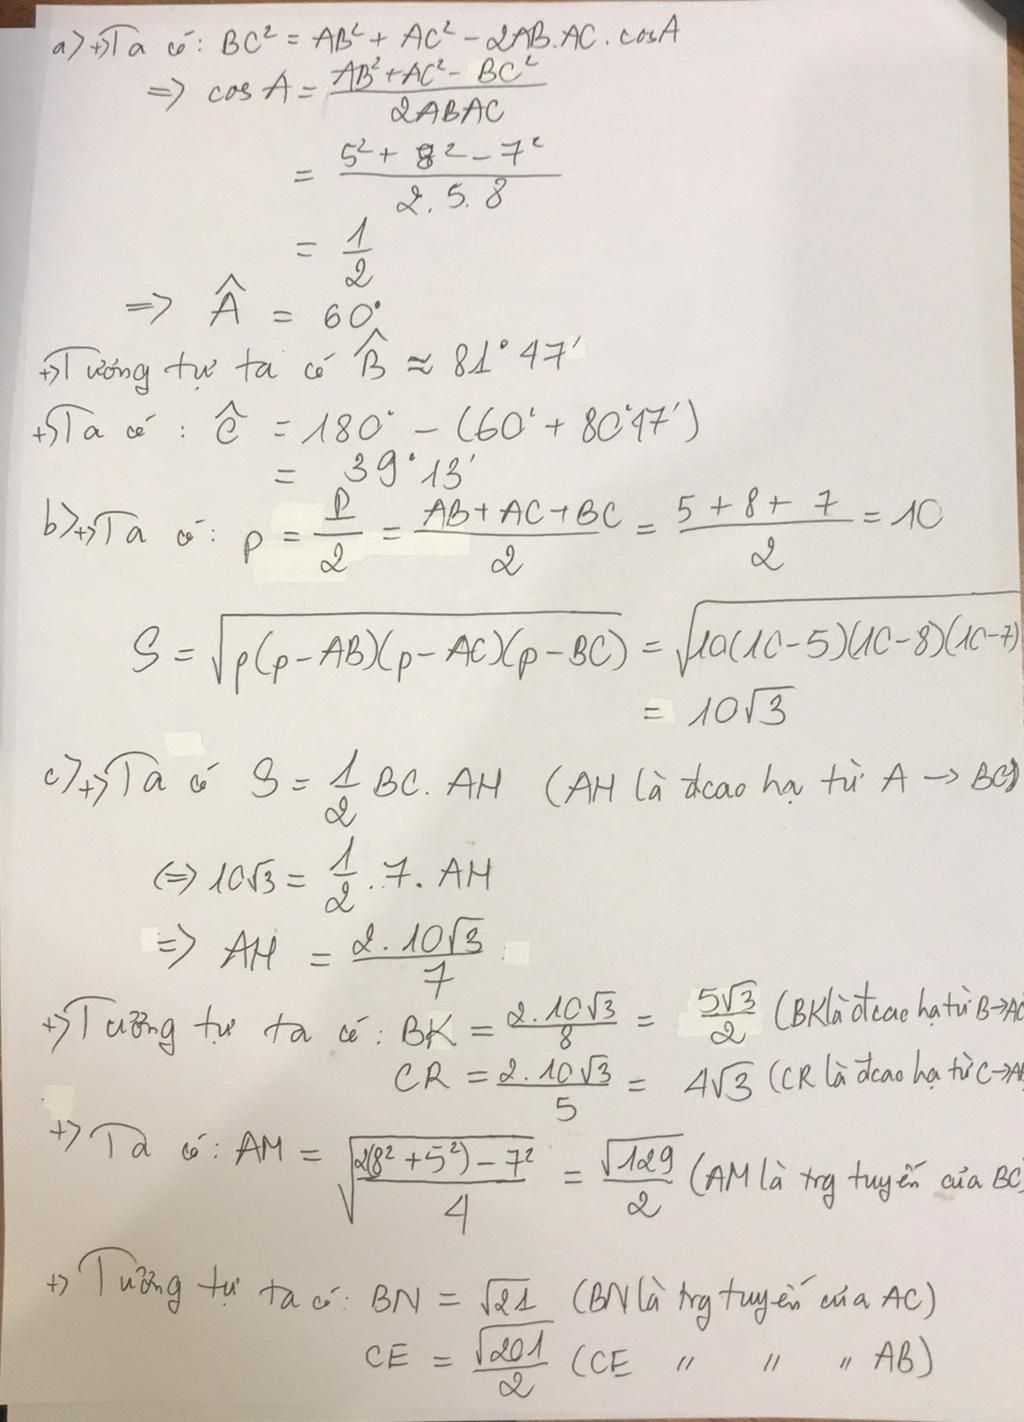 a) +) Ta có: BC² = AB² + AC² - 2AB.AC.cosA
=> cos A = \frac{AB² + AC² - BC²}{2ABAC}
= \frac{5² + 8² - 7²}{2.5.8}
= \frac{1}{2}
=> Â = 60°
+) Tương tự ta có B̂ ≈ 81°47'
+) Ta có: Ĉ = 180° - (60° + 80°47')
= 39°13'
b) +) Ta có: p = \frac{P}{2} = \frac{AB + AC + BC}{2} = \frac{5 + 8 + 7}{2} = 10
S = \sqrt{p(p-AB)(p-AC)(p-BC)} = \sqrt{10(10-5)(10-8)(10-7)}
= 10√3
c) +) Ta có S = \frac{1}{2} BC. AH (AH là đcao hạ từ A → BC)
(=> 10√3 = \frac{1}{2}.7. AH
=> AH = \frac{2.10√3}{7}
+) Tương tự ta có: BK = \frac{2.10√3}{8} = \frac{5√3}{2} (BK là đcao hạ từ B→AC
CR = \frac{2.10√3}{5} = 4√3 (CR là đcao hạ từ C→A
+) Ta có: AM = \sqrt{\frac{2(8² + 5²) - 7²}{4}} = \frac{√129}{2} (AM là trg tuyến của BC)
+) Tương tự ta có: BN = √21 (BN là trg tuyến của AC)
CE = \frac{√201}{2} (CE " " " AB)